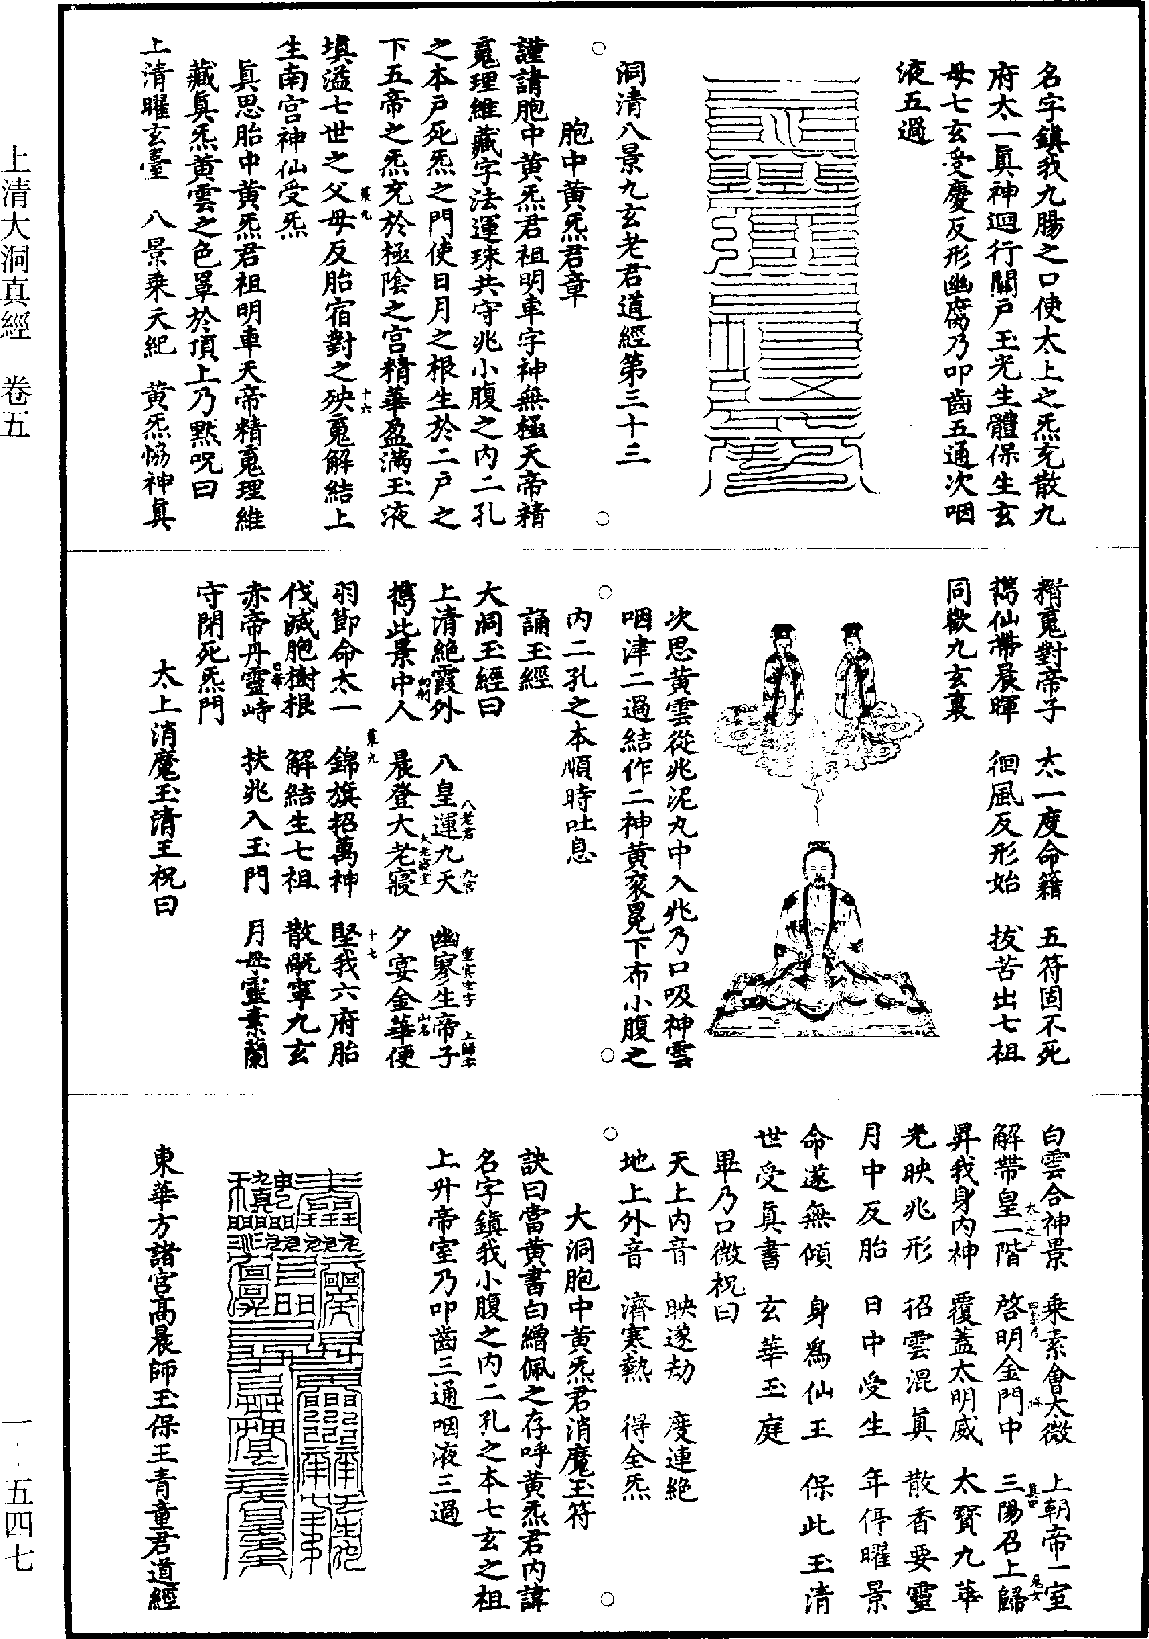 名字鎮我九腸之口使太上之炁充散九
府太一真神迴行關戶玉光生體保生玄
母七玄受慶反形幽腐乃叩齒五通次咽
液五過
洞清八景九玄老君道經第三十三
胞中黃炁君章
謹請胞中黃炁君祖明車字神無極天帝精
䰟理維藏字法運珠共守兆小腹之內二孔
之本戶死炁之門使日月之根生於二戶之
下五帝之炁充於極陰之宮精華盈滿玉液
填溢七世之父母反胎宿對之殃䰟解結上
生南宮神仙受炁
真思胎中黃炁君祖明車天帝精䰟理維
藏真炁黃雲之色罩於頂上乃黙呪曰
上清曜玄臺　八景乘天紀　黃炁恊神真
精䰟對帝子　太一度命籍　五符固不死
攜仙帶晨暉　徊風反形始　拔苦出七祖
同歡九玄裏
次思黃雲從兆泥丸中入兆乃口吸神雲
咽津二過結作二神黃衮冕下布小腹之
內二孔之本順時吐息
誦玉經
大洞玉經曰
上清絕霞外　八皇運九天　幽寥生帝子
攜此景中人　晨登大老寢　夕宴金華便
羽節命太一　錦旗招萬神　堅我六府胎
伐滅胞樹根　解結生七祖　散翫寧九玄
赤帝丹靈峙　扶兆入玉門　月母靈素蘭
守閉死炁門
太上消魔玉清王祝曰
白雲合神景　乘素會太微　上朝帝一室
解帶皇一階　啓明金門中　三陽召上歸
昇我身內神　覆蓋太明威　太寶九華
光映兆形　招雲混真　散香要靈
月中反胎　日中受生　年停曜景
命遂無傾　身爲仙王　保此玉清
世受真書　玄華玉庭
畢乃口微祝曰
天上內音　映遂劫　度連絕
地上外音　濟寒熱　得全炁
大洞胞中黃炁君消魔玉符
訣曰當黃書白繒佩之存呼黃炁君內諱
名字鎮我小腹之內二孔之本七玄之祖
上升帝室乃叩齒三通咽液三過
東華方諸宮高晨師玉保王青童君道經
上清大洞真經　卷五
一‧五四七